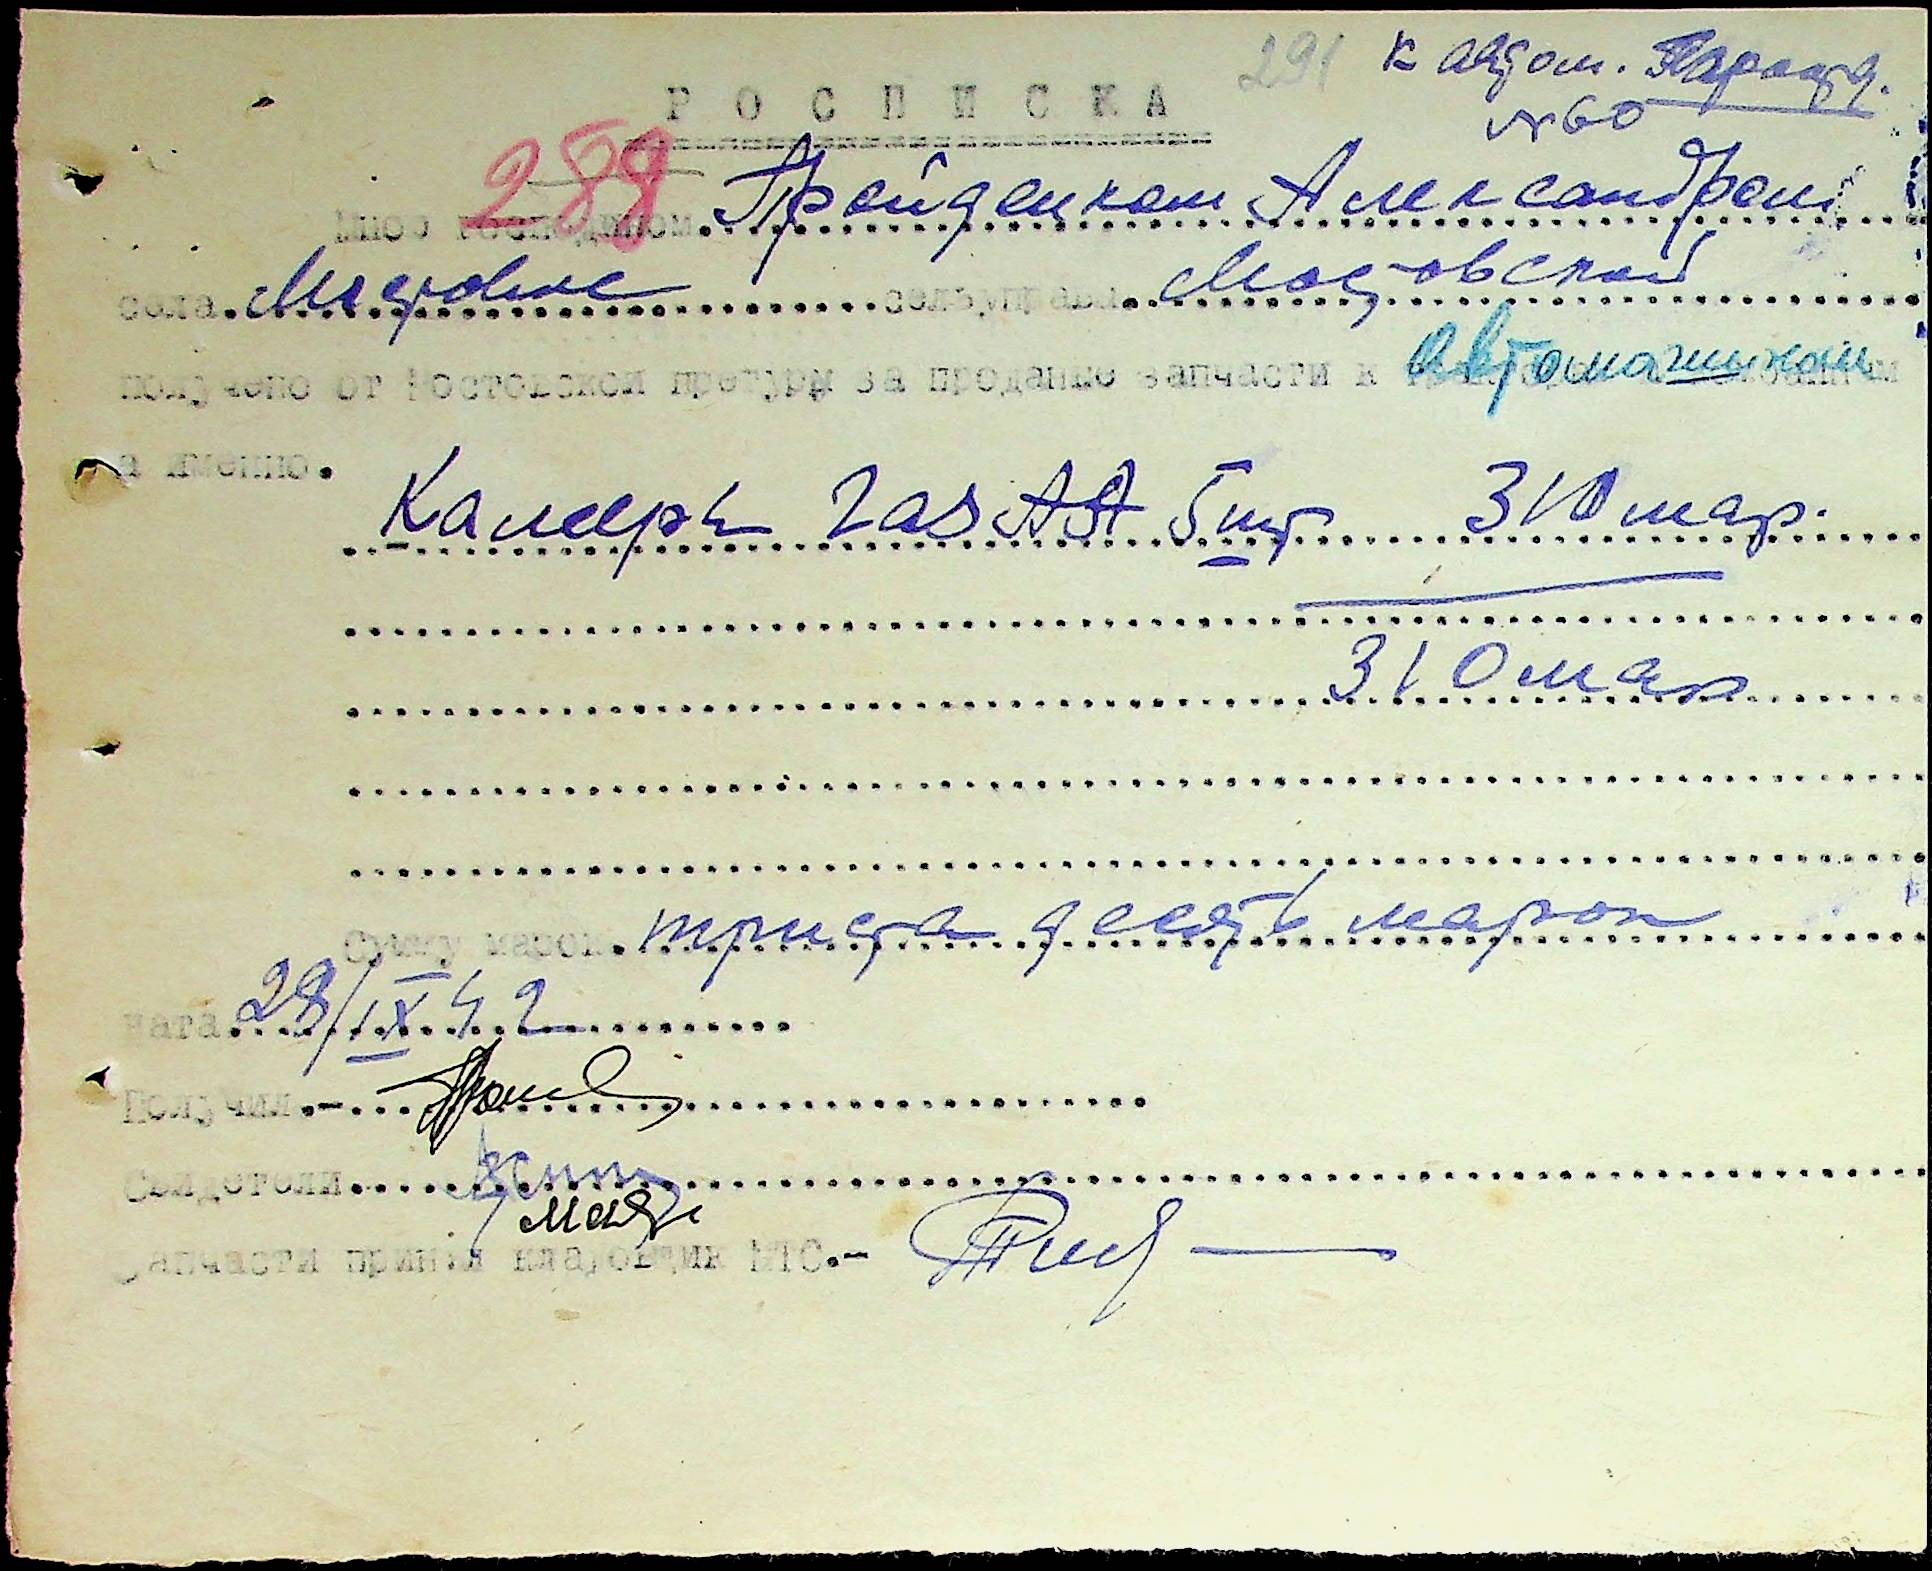 291 к авт
№60
РОСПИСКА
289
Мною господином Тройдецком Александром
села Мостовое сельуправы Мостовской
получено от Ростовской претуры за проданые запчасти к автомашинам
а именно.
Камеры Газ АА 5 шт 310 мар.
310 мар
Сумму марок. триста десять марок
Дата 28/IX 42
Получил.-
Свидетели
Запчасти принял кладовщик МТС.-